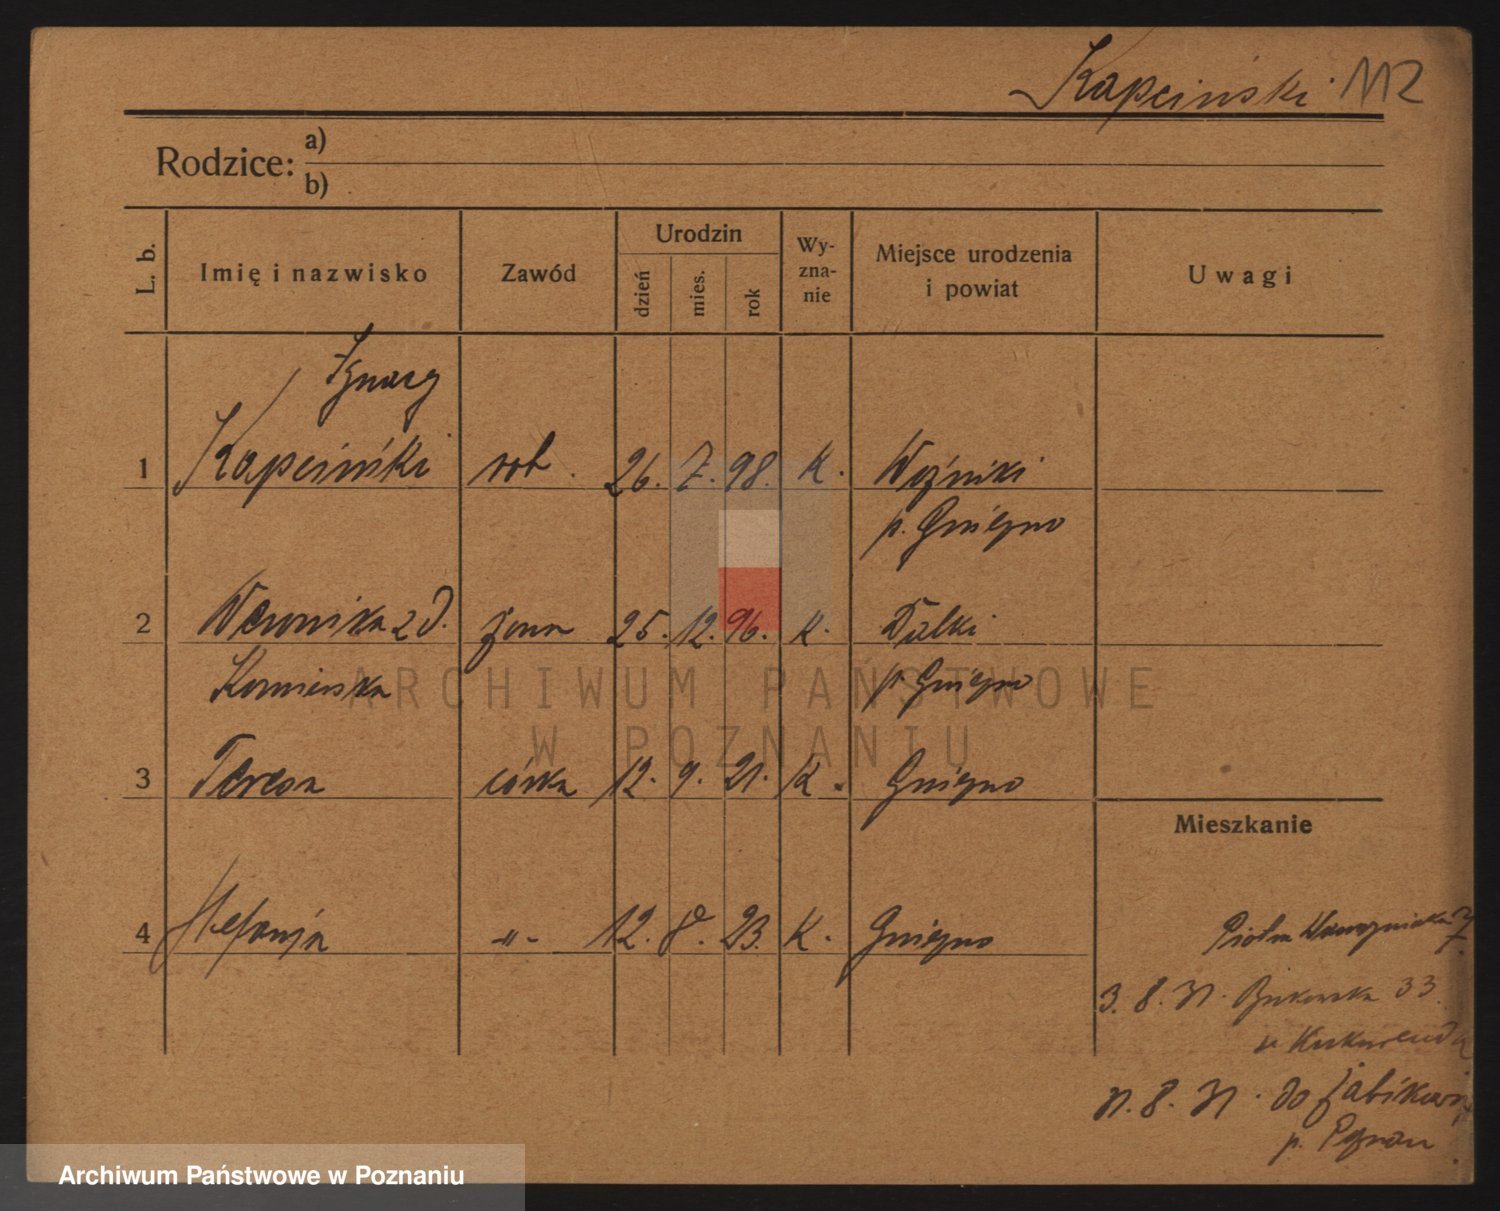 Kapciński 112
Rodzice: a)
b)
L. b. Imię i nazwisko Zawód Urodzin dzień mies. rok Wy-zna-nie Miejsce urodzenia i powiat Uwagi
Ignacy
1 Kapciński rob. 26. 7. 98. K. Woźniki
p. Gniezno
2 Weronika z d. żona 25. 12. 96. K. Dalki
p. Gniezno
3 Teresa córka 12. 9. 21. K. Gniezno
Mieszkanie
4 Stefanja -"- 12. 8. 23. K. Gniezno
Piotra Wawrzyniaka 7
3. 8. 31. Bukowska 33
31. 8. 31. do Żabikowa
p. Poznań
ARCHIWUM PAŃSTWOWE
W POZNANIU
Archiwum Państwowe w Poznaniu